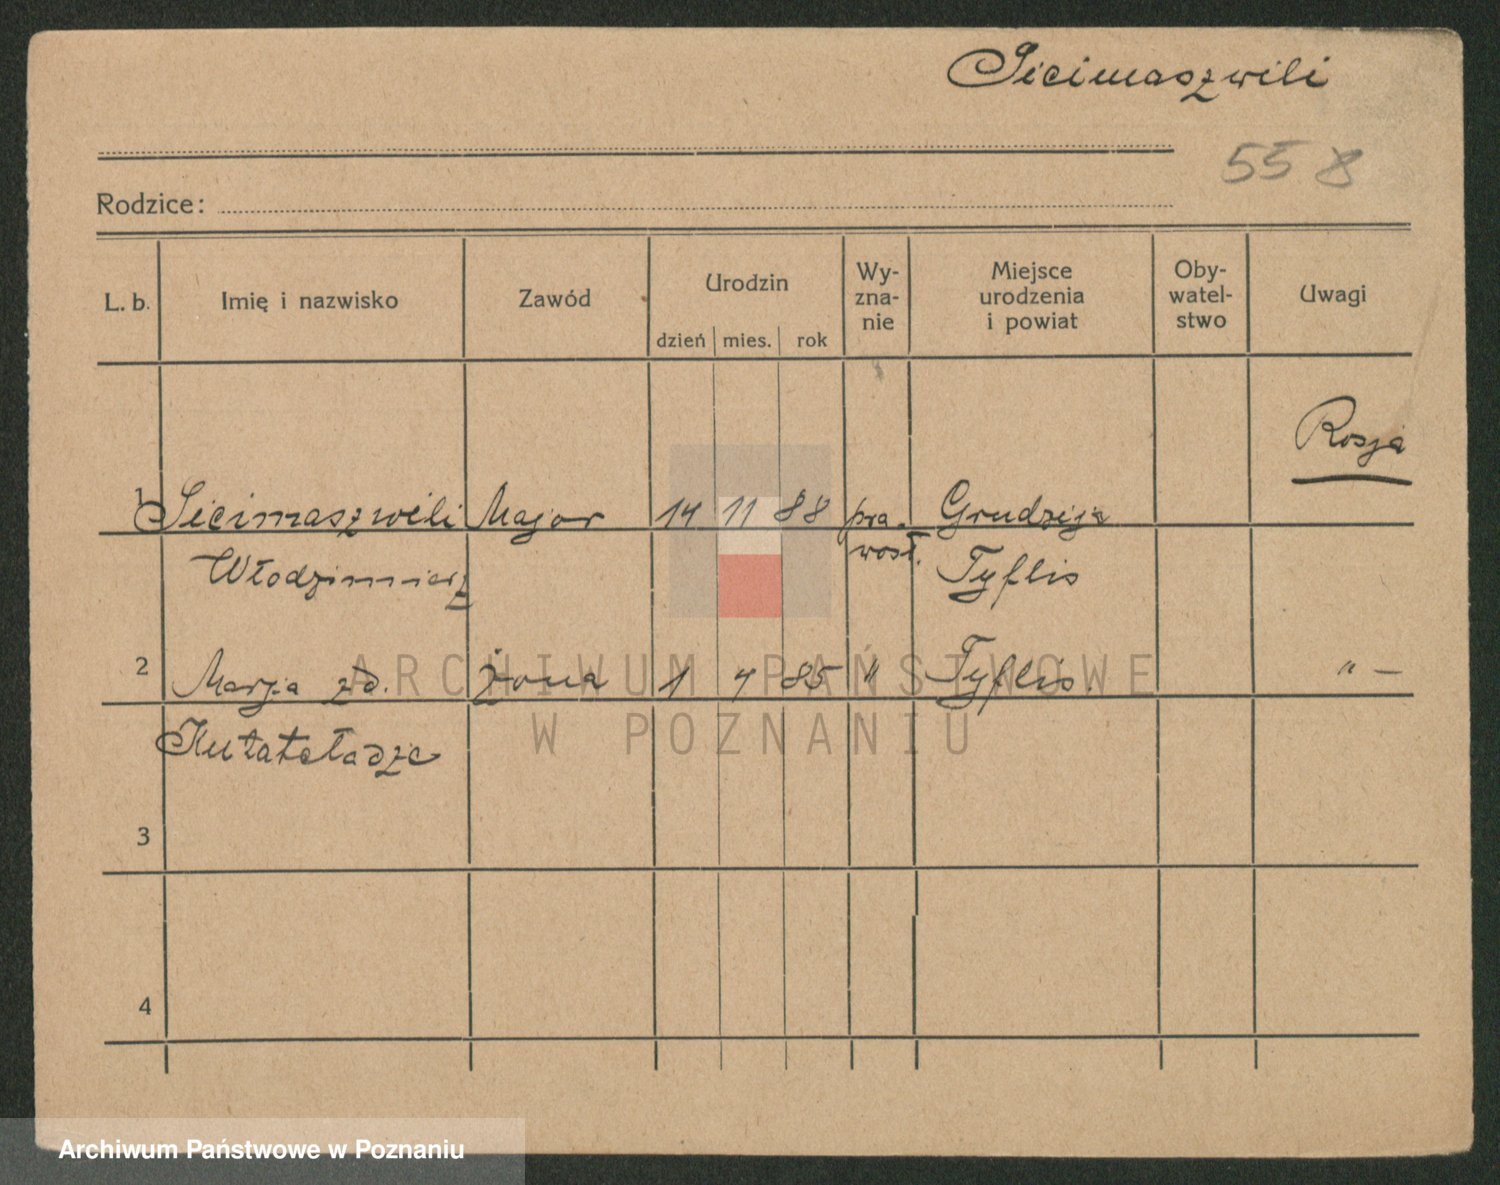 Sicimaszwili
558
Rodzice:
L. b. Imię i nazwisko Zawód Urodzin Wy- Miejsce Oby- Uwagi
zna- urodzenia watel-
nie i powiat stwo
dzień mies. rok
Rosja
1 Sicimaszwili Major 14 11 88 pra- Grudzija
Włodzimierz wosł. Tyflis
2 Marja zd. żona 1 7 85 " Tyflis. " —
Kutateładze
3
4
ARCHIWUM PAŃSTWOWE
W POZNANIU
Archiwum Państwowe w Poznaniu